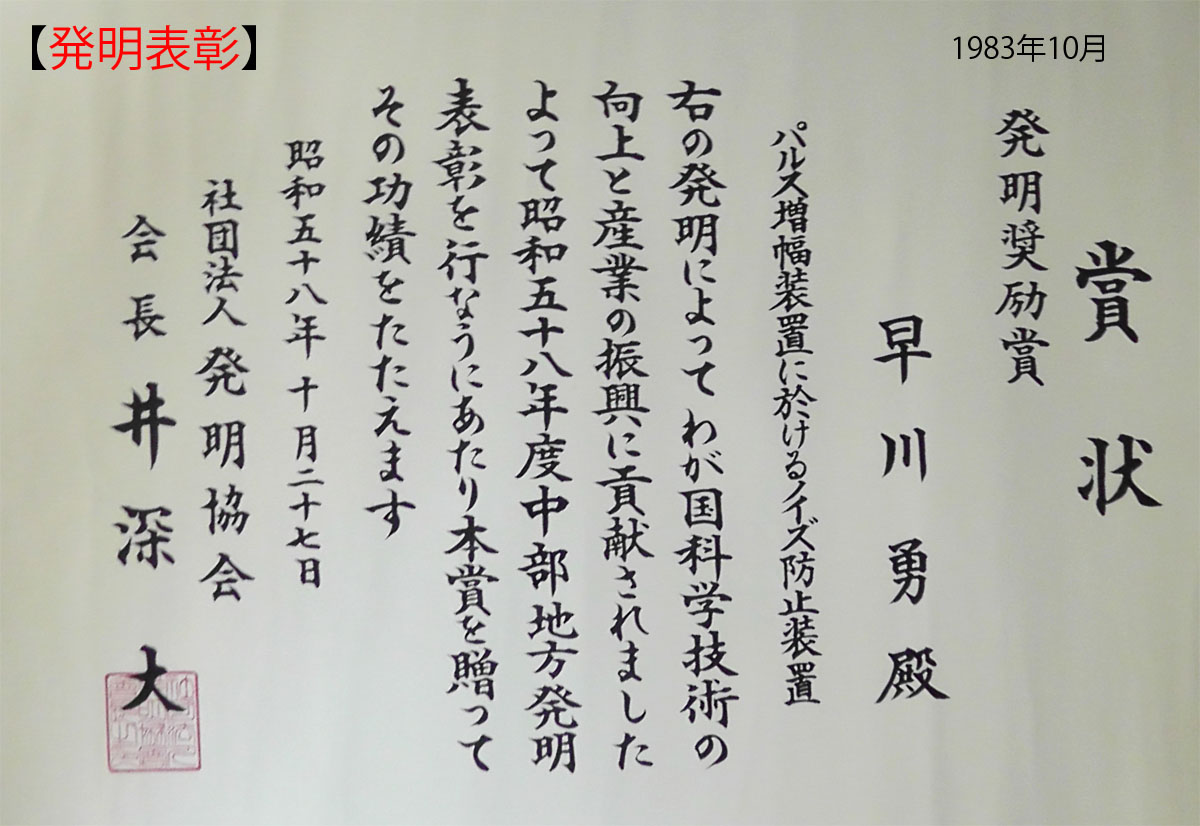 【発明表彰】
1983年10月
賞状
発明奨励賞
早川勇殿
パルス増幅装置に於けるノイズ防止装置
右の発明によって わが国科学技術の
向上と産業の振興に貢献されました
よって昭和五十八年度中部地方発明
表彰を行なうにあたり本賞を贈って
その功績をたたえます
昭和五十八年十月二十七日
社団法人発明協会
会長井深大